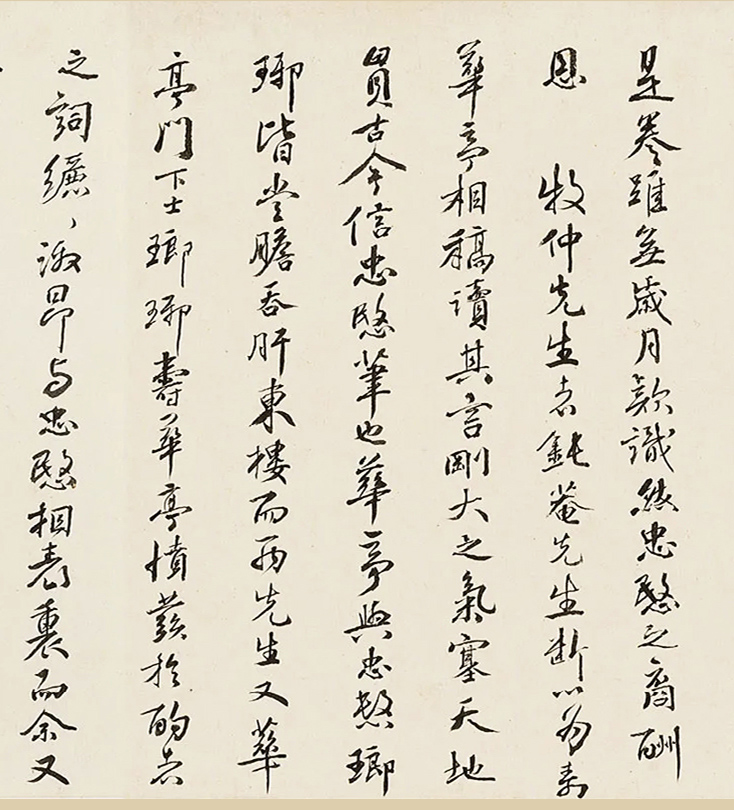 是卷雖無歲月款識然忠愍之裔酬
恩 牧仲先生志鈍菴先生斷以為壽
華亭相稿讀其言剛大之氣塞天地
貫古今信忠愍筆也華亭與忠愍瑯
琊皆嘗膽吞肝東樓而兩先生又華
亭門下士瑯琊壽華亭憤 於酌
之詞纚〻激昂与忠愍相表裏而余又